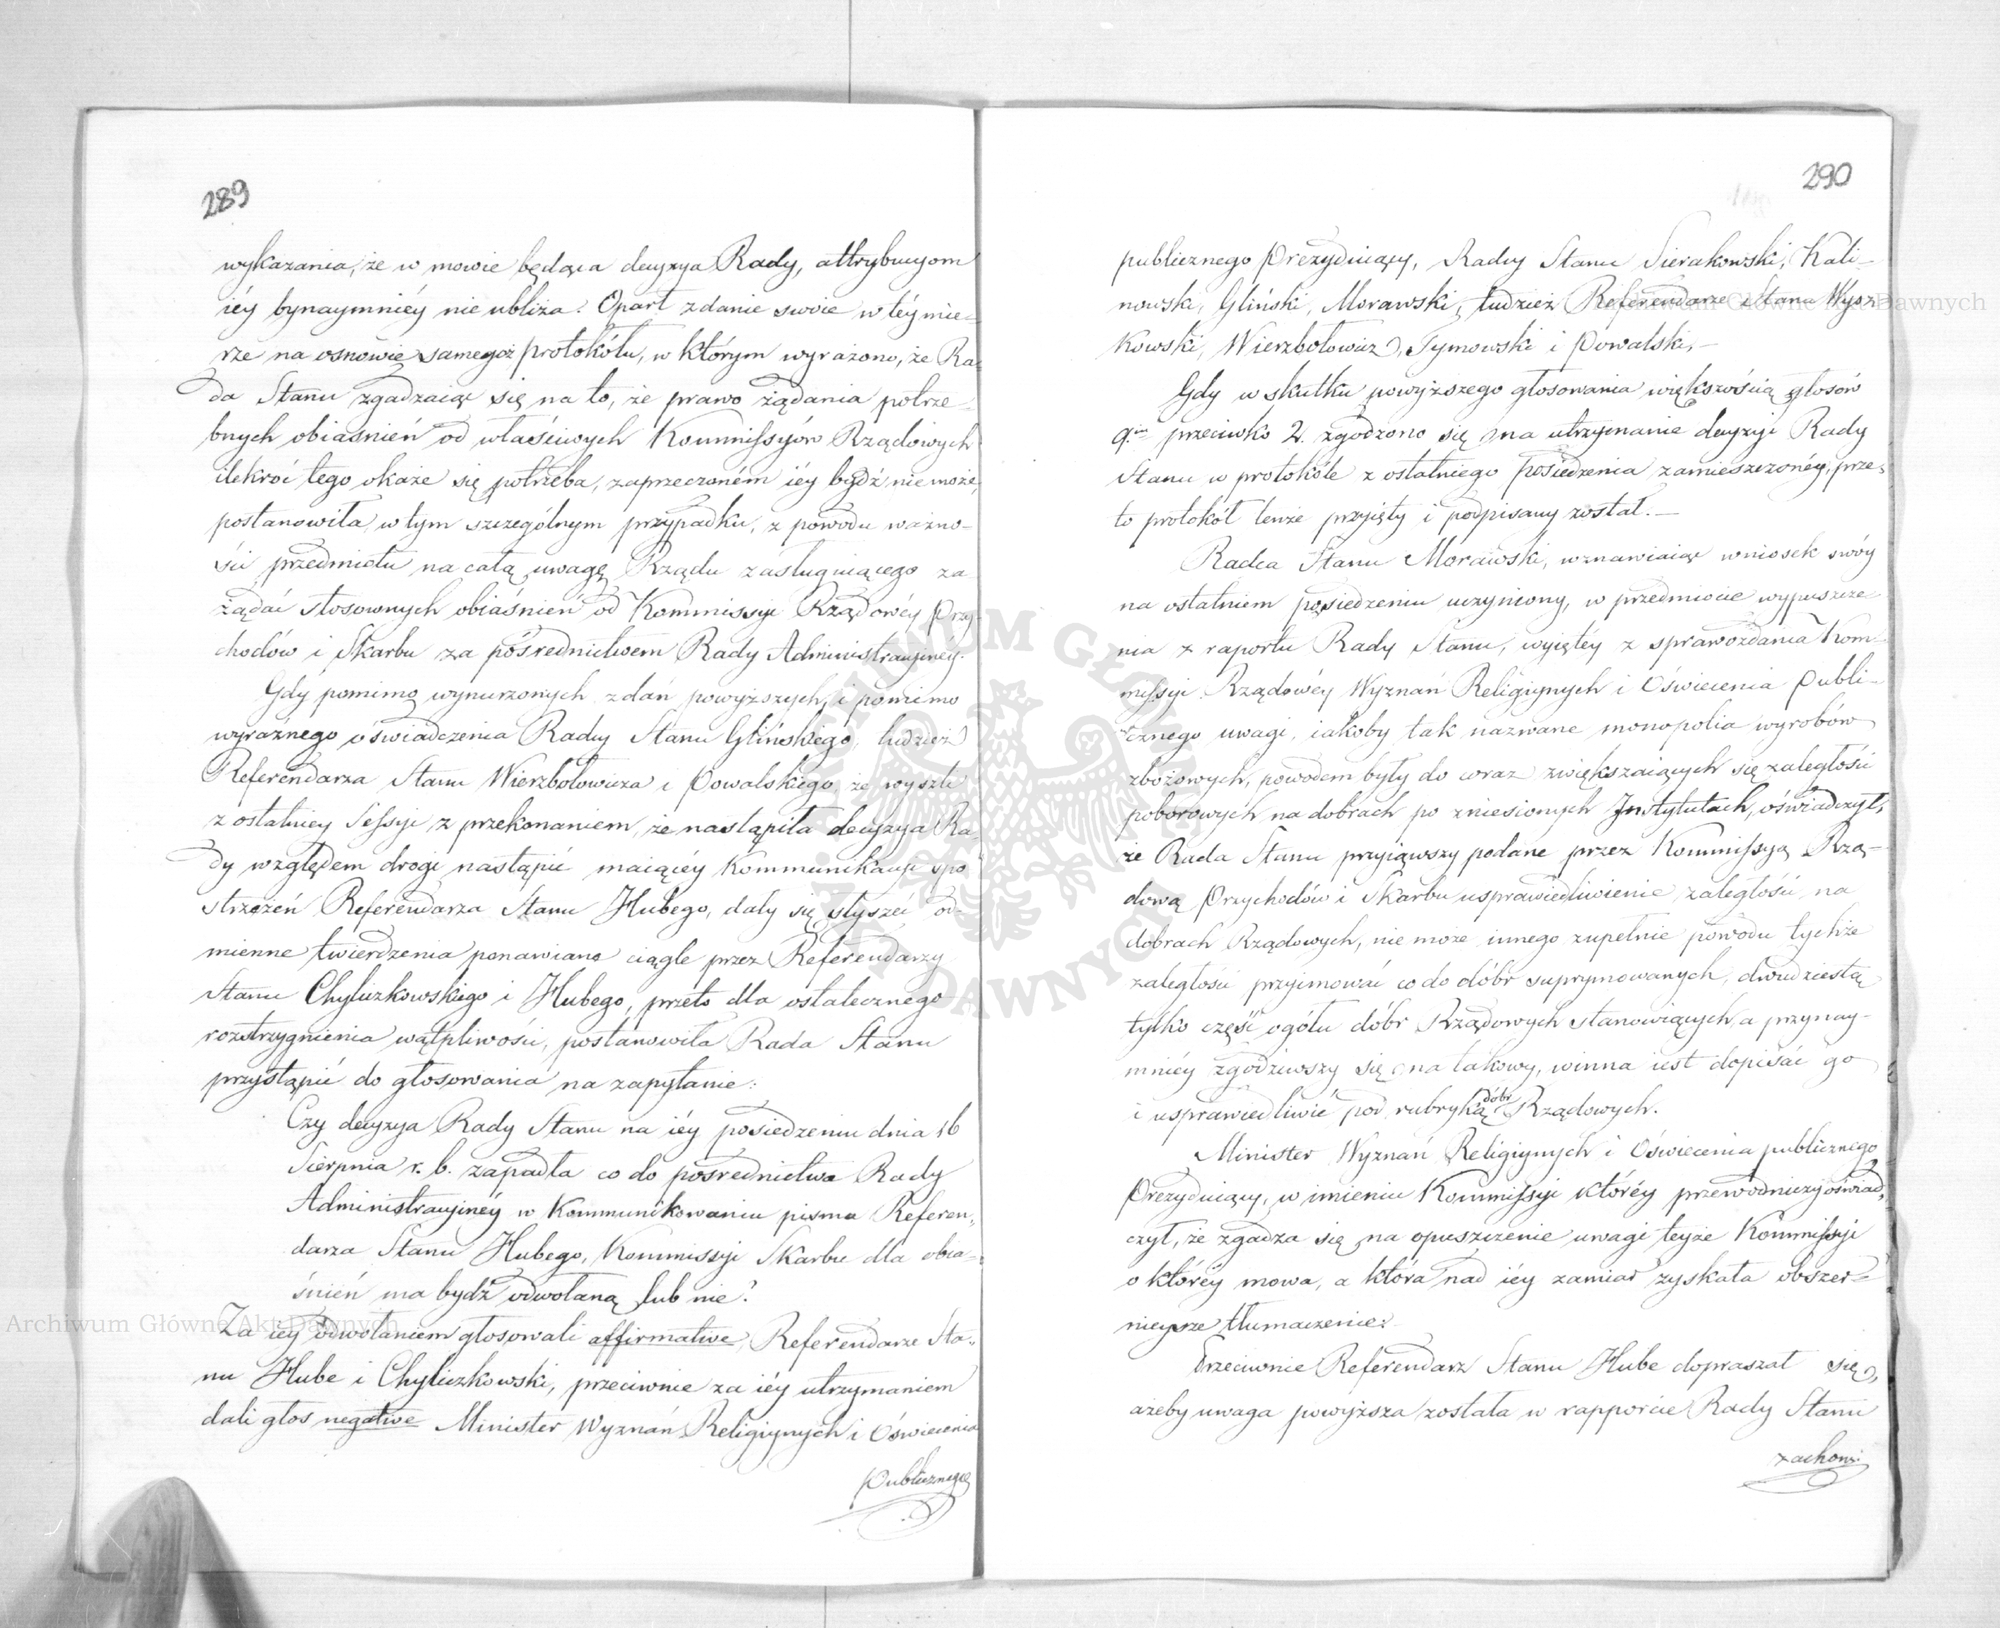 289
wykazania, że w mowie będąca decyzya Rady, attrybucyom
iéy bynaymniéy nie ubliża. Oparł zdanie swoie w téy mie-
rze na osnowie samegoż protokółu, w którym wyrażono, że Ra-
da Stanu zgadzaiąc się na to, że prawo żądania potrze-
bnych obiaśnień od właściwych Kommissyów Rządowych
ilekroć tego okaże się potrzeba, zaprzeczoném iéy bydź nie może,
postanowiła w tym szczególnym przypadku, z powodu ważno-
ści przedmiotu na całą uwagę Rządu zasługuiącego za
żądać stosownych obiaśnień od Kommissyi Rządowéy Przy-
chodów i Skarbu za pośrednictwem Rady Administracyjney.
Gdy pomimo wynurzonych zdań powyższych, i pomimo
wyraźnego oświadczenia Radcy Stanu Glińskiego, tudzież
Referendarza Stanu Wierzbołowicza i Powalskiego, że wyszli
z ostatniey Sessyi z przekonaniem, że nastąpiła decyzya Ra-
dy względem drogi nastąpić maiącéy kommunikacyi spo
strzeżeń Referendarza Stanu Hubego, dały się słyszeć od-
mienne twierdzenia ponawiane ciągle przez Referendarzy
Stanu Chyliczkowskiego i Hubego, przeto dla ostatecznego
rozstrzygnienia wątpliwości, postanowiła Rada Stanu
przystąpić do głosowania na zapytanie:
Czy decyzya Rady Stanu na iéy posiedzeniu dnia 16
Sierpnia r. b. zapadła co do pośrednictwa Rady
Administracyinéy w kommunikowaniu pisma Referen-
darza Stanu Hubego, Kommissyi Skarbu dla obia-
śnień ma bydź odwołaną lub nie?
Za iéy odwołaniem głosowali affirmative, Referendarze Sta-
nu Hube i Chyliczkowski, przeciwnie za iéy utrzymaniem
dali głos negative Minister Wyznań Religiynych i Oświecenia
Publicznego
290
publicznego Prezyduiący, Radcy Stanu Sierakowski, Kali-
nowski, Gliński, Morawski, tudzież Referendarze Stanu Wysz
kowski, Wierzbołowicz, Tymowski i Powalski,—
Gdy w skutku powyższego głosowania większością głosów
9.iu przeciwko 2. zgodzono się na utrzymanie decyzyi Rady
Stanu w protokóle z ostatniego posiedzenia zamieszczonéy, prze-
to protokół tenże przyięty i podpisany został.—
Radca Stanu Morawski, wznawiaiąc wniosek swóy
na ostatniem posiedzeniu uczyniony, w przedmiocie wypuszcze
nia z raportu Rady Stanu, wyiętéy z sprawozdania Kom-
missyi Rządowéy Wyznań Religiynych i Oświecenia Publi-
cznego uwagi, iakoby tak nazwane monopolia wyrobów
zbożowych, powodem były do coraz zwiększaiących się zaległości
poborowych na dobrach po zniesionych Instytutach, oświadczył,
że Rada Stanu przyiąwszy podane przez Kommissyą Rzą-
dową Przychodów i Skarbu usprawiedliwienie zaległości na
dobrach Rządowych, nie może innego zupełnie powodu tychże
zaległości przyimować co do dóbr suprymowanych, dwudziestą
tylko część ogółu dóbr Rządowych stanowiących, a przynay-
mniéy zgodziwszy się na takowy, winna iest dopisać go
i usprawiedliwić pod rubryką dóbr Rządowych.
Minister Wyznań Religiynych i Oświecenia publicznego
Prezyduiący, w imieniu Kommissyi któréy przewodniczy oświad-
czył, że zgadza się na opuszczenie uwagi teyże Kommissyi
o któréy mowa, a która nad iéy zamiar zyskała obszer-
nieysze tłumaczenie.
Przeciwnie Referendarz Stanu Hube dopraszał się,
ażeby uwaga powyższa została w rapporcie Rady Stanu
zachowa-
Archiwum Główne Akt Dawnych
Archiwum Główne Akt Dawnych
ARCHIWUM GŁÓWNE AKT DAWNYCH